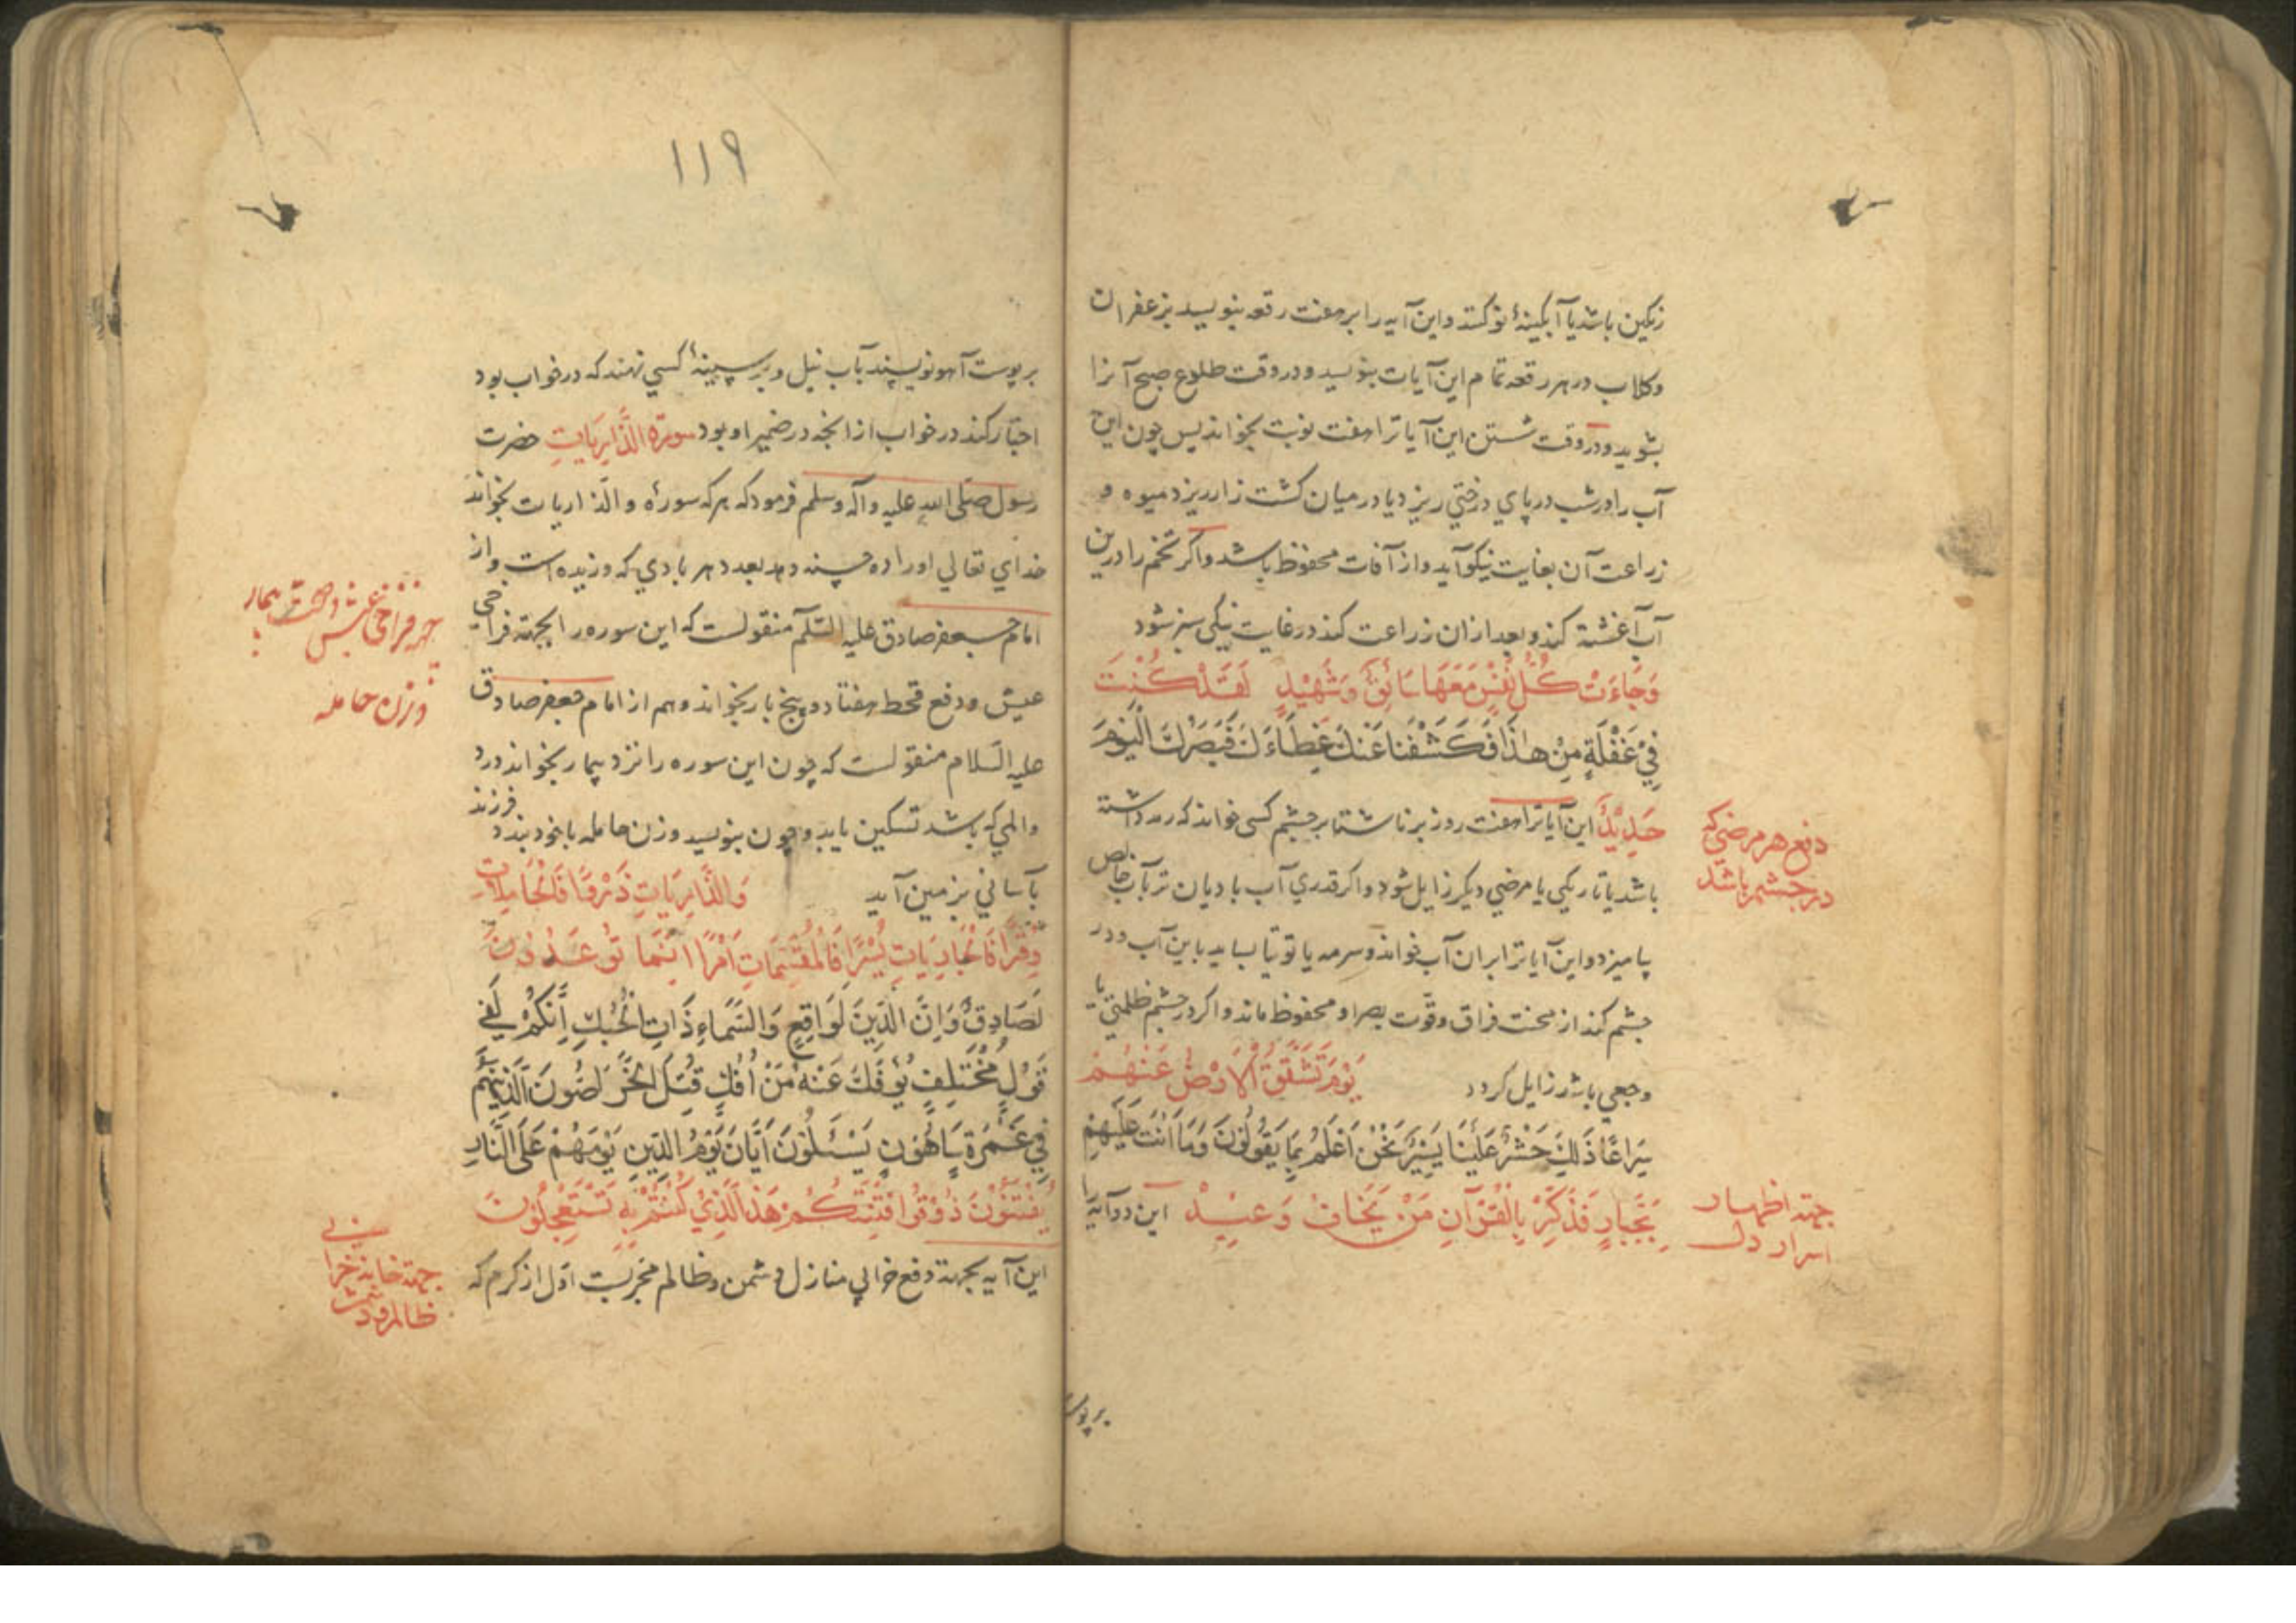 زنکین باشد یا آبکینهٔ نو کند و این آیه را بر هفت رقعه بنویسد بزعفران
و کلاب در هر رقعه تمام این آیات بنویسد و در وقت طلوع صبح آنرا
بشوید و در وقت شستن این آیاترا هفت نوبت بخواند پس چون این
آب را در شب در پای درختی ریزد یا در میان کشت زار ریزد میوه و
زراعت آن بغایت نیکو آید و از آفات محفوظ باشد و اکر تخم را درین
آب آغشته کند و بعد از ان زراعت کند در غایت نیکی سبز شود
وَجَاءَتْ كُلُّ نَفْسٍ مَعَهَا سَائِقٌ وَشَهِيْدٌ لَقَدْ كُنْتَ
فِيْ غَفْلَةٍ مِنْ هٰذَا فَكَشَفْنَا عَنْكَ غِطَاءَكَ فَبَصَرُكَ الْيَوْمَ
حَدِيْدٌ این آیاترا هفت روز بر ناشتا بر چشم کسی خواند که رمد داشته
باشد یا تاریکی یا مرضی دیکر زایل شود و اکر قدری آب بادیان تر بآب خاص
بیامیزد و این آیاترا بران آب خواند و سرمه یا توتیا بساید باین آب و در
چشم کند از محنت فراق و قوّت بصر او محفوظ ماند و اکر در چشم ظلمتی یا
وجعی باشد زایل کردد يَوْمَ تَشَقَّقُ الْاَرْضُ عَنْهُمْ
سِرَاعًا ذٰلِكَ حَشْرٌ عَلَيْنَا يَسِيْرٌ نَحْنُ اَعْلَمُ بِمَا يَقُوْلُوْنَ وَمَا اَنْتَ عَلَيْهِمْ
بِجَبَّارٍ فَذَكِّرْ بِالْقُرْآنِ مَنْ يَخَافُ وَعِيْدْ این دو آیه را
دفع هر مرضی که
در چشم باشد
جهة اظهار
اسرار دل
بر پوست
۱۱۹
بر پوست آهو نویسند بآب نیل و بر سینهٔ کسی نهند که در خواب بود
اخبار کند در خواب از انچه در ضمیر او بود سورة الذَّارِيَاتِ حضرت
رسول صلّی الله علیه وآله وسلم فرمود که هر که سورهٔ والذاریات بخواند
خدای تعالی او را ده حسنه دهد بعدد هر بادی که وزیده است و از
امام جعفر صادق علیه السّلام منقولست که این سوره را بجهة فراخی
عیش و دفع قحط هفتاد و پنج بار بخواند و هم از امام جعفر صادق
علیه السّلام منقولست که چون این سوره را نزد بیمار بخواند درد
و المی که باشد تسکین یابد و چون بنویسد و زن حامله با خود بندد فرزند
بآسانی بزمین آید وَالذَّارِيَاتِ ذَرْوًا فَالْحَامِلَاتِ
وِقْرًا فَالْجَارِيَاتِ يُسْرًا فَالْمُقَسِّمَاتِ اَمْرًا اِنَّمَا تُوْعَدُوْنَ
لَصَادِقٌ وَاِنَّ الدِّيْنَ لَوَاقِعٌ وَالسَّمَاءِ ذَاتِ الْحُبُكِ اِنَّكُمْ لَفِيْ
قَوْلٍ مُخْتَلِفٍ يُؤْفَكُ عَنْهُ مَنْ اُفِكَ قُتِلَ الْخَرَّاصُوْنَ الَّذِيْنَ هُمْ
فِيْ غَمْرَةٍ سَاهُوْنَ يَسْئَلُوْنَ اَيَّانَ يَوْمُ الدِّيْنِ يَوْمَ هُمْ عَلَى النَّارِ
يُفْتَنُوْنَ ذُوْقُوْا فِتْنَتَكُمْ هٰذَا الَّذِيْ كُنْتُمْ بِهِ تَسْتَعْجِلُوْنَ
این آیه بجهة دفع خرابی منازل دشمن و ظالم مجربست اوّل از کرم که
فراخی عیش
و زن حامله
جهة خانه خرا
بی
ظالم و دشمن